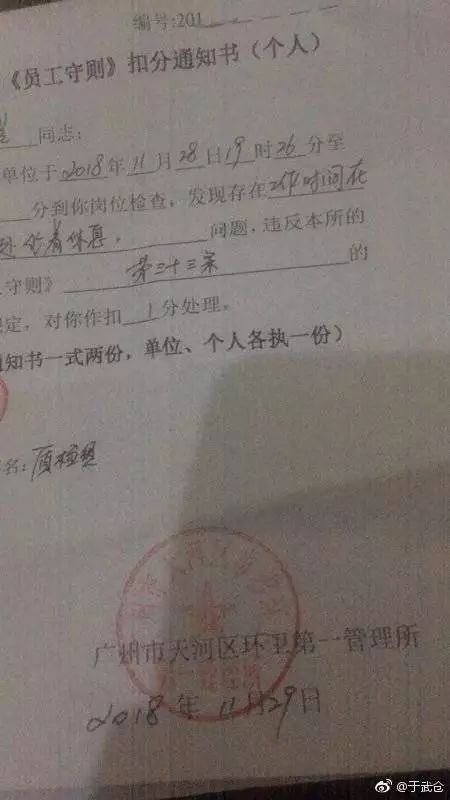 编号:201
《员工守则》扣分通知书(个人)
同志:
单位于2018年11月28日19时26分至
分到你岗位检查，发现存在工作时间在
坐着休息， 问题，违反本所的
守则》 第三十三条 的
定，对你作扣 1 分处理。
知书一式两份，单位、个人各执一份)
名: 质检组
广州市天河区环卫第一管理所
2018年11月29日
@于武仓